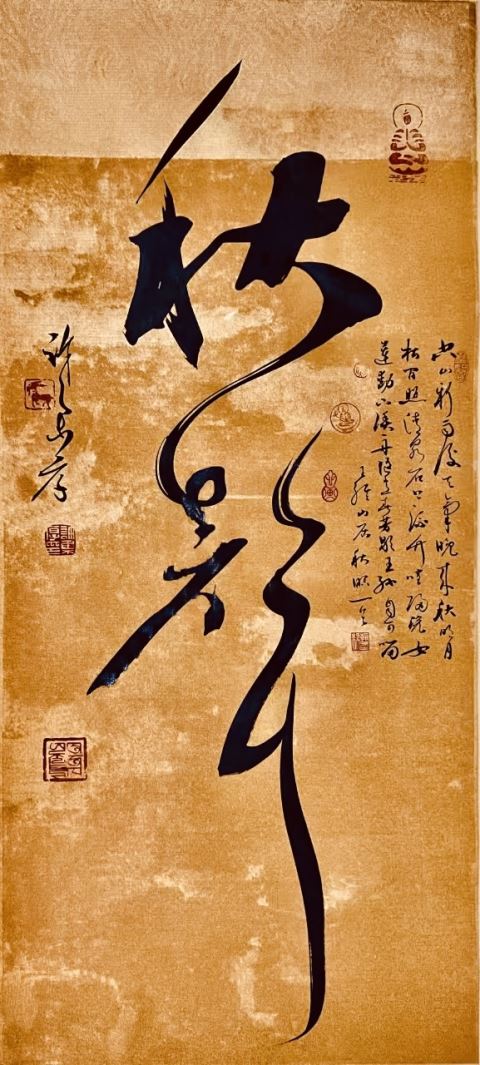 空山新雨後天氣晚來秋明月
松間照清泉石上流竹喧歸浣女
蓮動下漁舟隨意春芳歇王孫自可留
王維山居秋暝一首
秋影